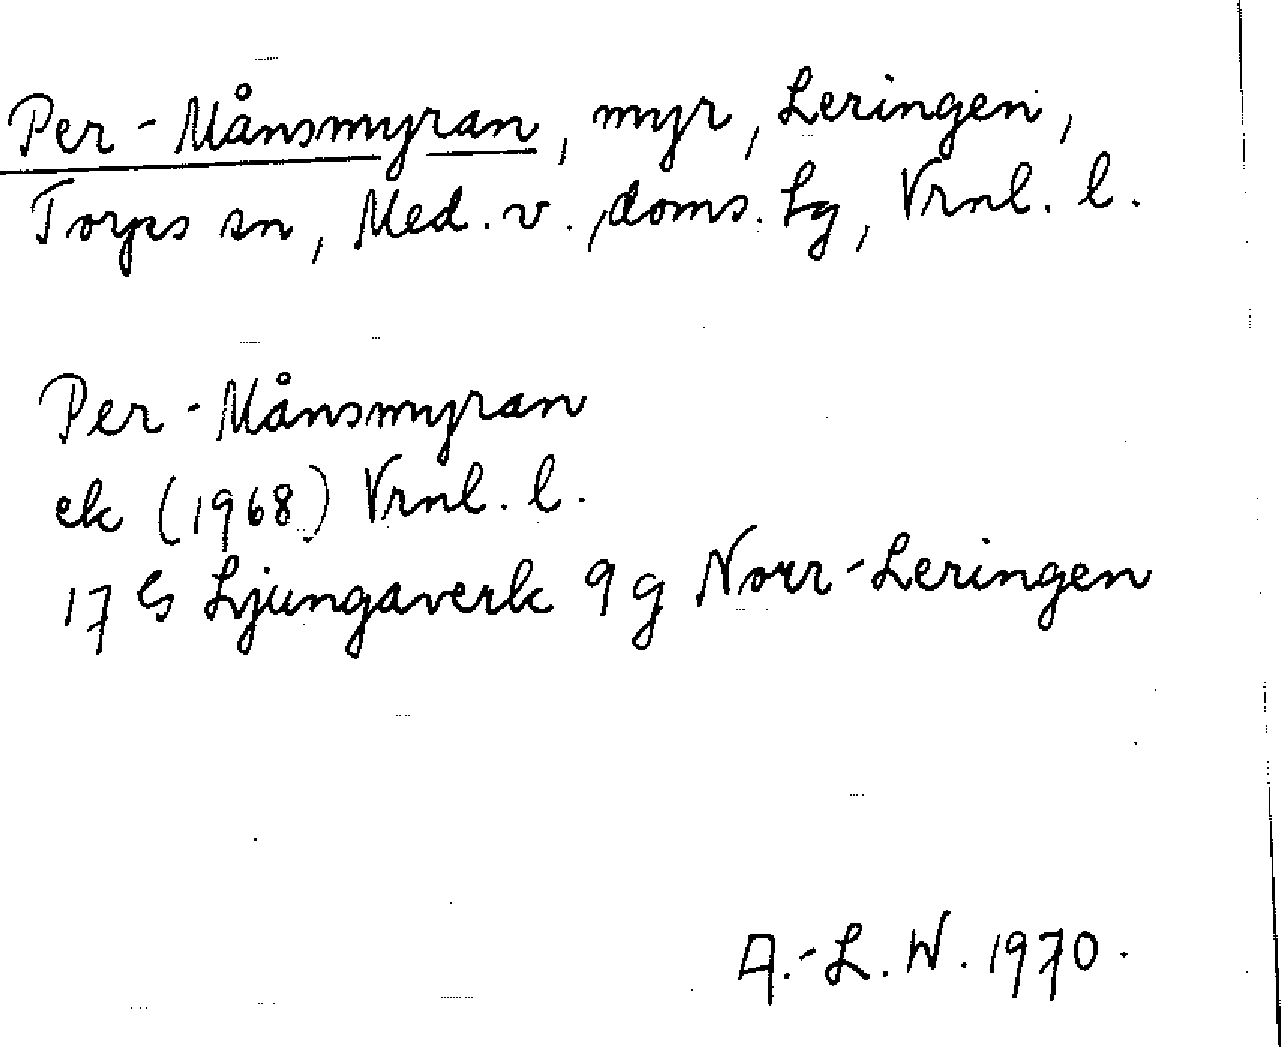 Per-Månsmyran, myr, Leringen,
Torps sn, Med. v. doms. tg, Vrnl. l.
Per-Månsmyran
ek (1968) Vrnl. l.
17 G Ljungaverk 9 g Norr-Leringen
A.-L. W. 1970.